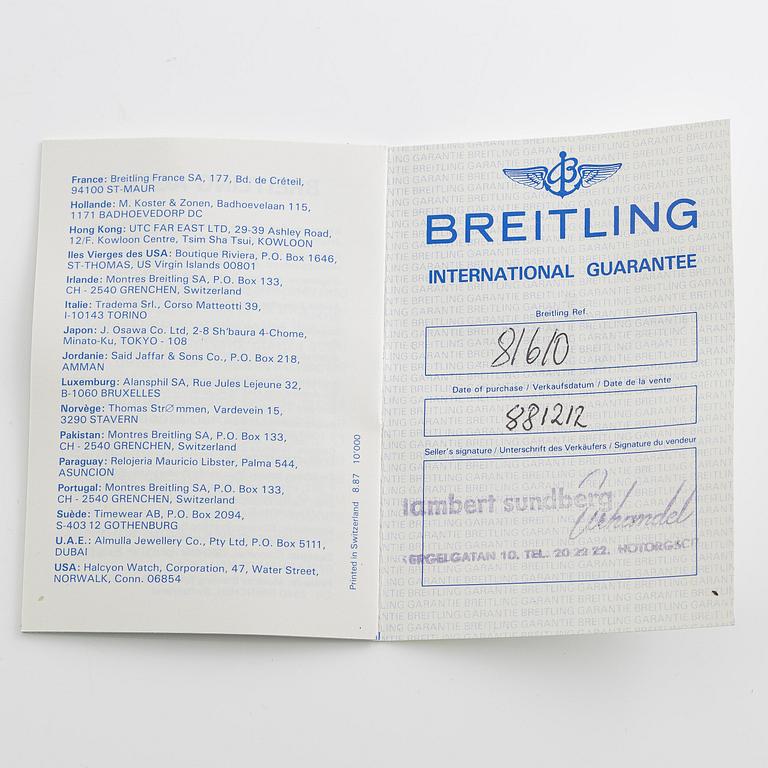 France: Breitling France SA, 177, Bd. de Créteil,
94100 ST-MAUR
Hollande: M. Koster & Zonen, Badhoevelaan 115,
1171 BADHOEVEDORP DC
Hong Kong: UTC FAR EAST LTD, 29-39 Ashley Road,
12/F. Kowloon Centre, Tsim Sha Tsui, KOWLOON
Iles Vierges des USA: Boutique Riviera, P.O. Box 1646,
ST-THOMAS, US Virgin Islands 00801
Irlande: Montres Breitling SA, P.O. Box 133,
CH - 2540 GRENCHEN, Switzerland
Italie: Tradema Srl., Corso Matteotti 39,
I-10143 TORINO
Japon: J. Osawa Co. Ltd, 2-8 Sh'baura 4-Chome,
Minato-Ku, TOKYO - 108
Jordanie: Said Jaffar & Sons Co., P.O. Box 218,
AMMAN
Luxemburg: Alansphil SA, Rue Jules Lejeune 32,
B-1060 BRUXELLES
Norvège: Thomas StrØmmen, Vardevein 15,
3290 STAVERN
Pakistan: Montres Breitling SA, P.O. Box 133,
CH - 2540 GRENCHEN, Switzerland
Paraguay: Relojeria Mauricio Libster, Palma 544,
ASUNCION
Portugal: Montres Breitling SA, P.O. Box 133,
CH - 2540 GRENCHEN, Switzerland
Suède: Timewear AB, P.O. Box 2094,
S-403 12 GOTHENBURG
U.A.E.: Almulla Jewellery Co., Pty Ltd, P.O. Box 5111,
DUBAI
USA: Halcyon Watch, Corporation, 47, Water Street,
NORWALK, Conn. 06854
Printed in Switzerland 8.87 10'000
B
BREITLING
INTERNATIONAL GUARANTEE
Breitling Ref.
81610
Date of purchase / Verkaufsdatum / Date de la vente
881212
Seller's signature / Unterschrift des Verkäufers / Signature du vendeur
lambert sundberg
Urhandel
10. TEL. 20 22 22.